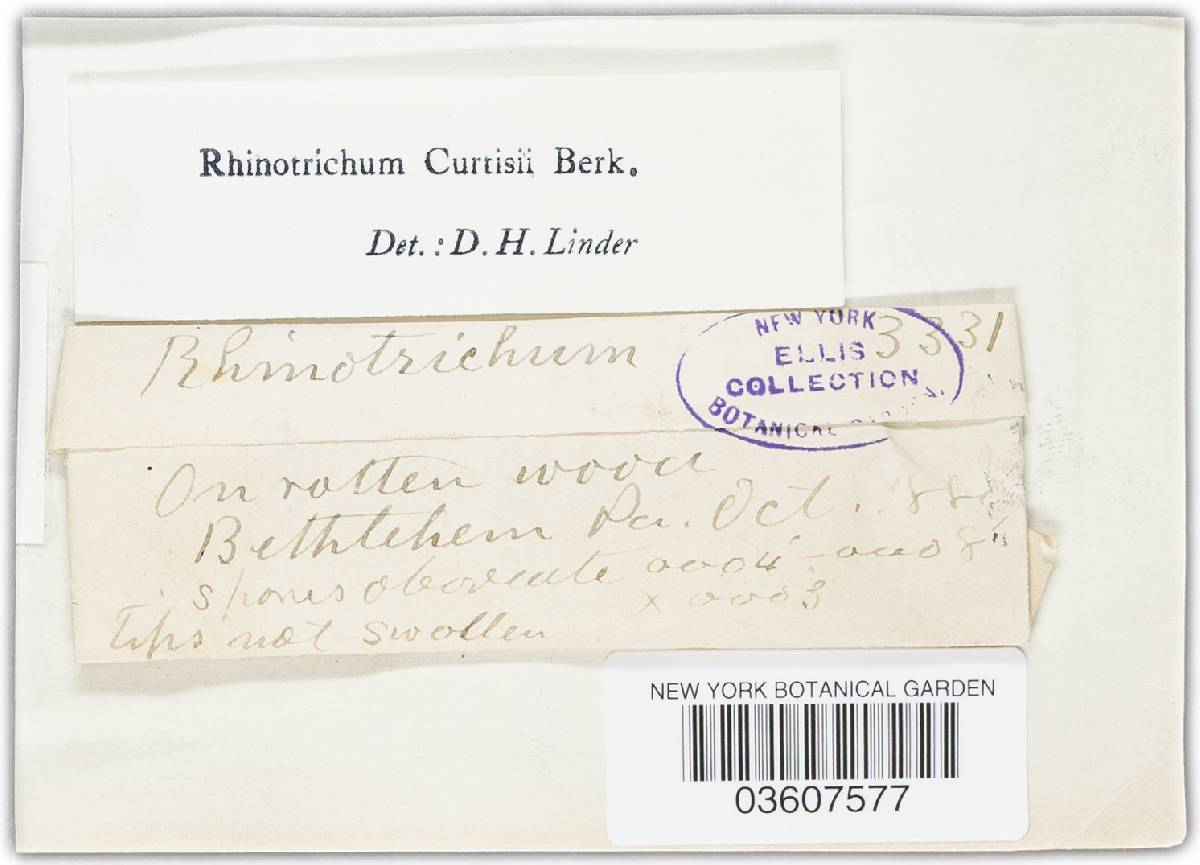 Rhinotrichum Curtisii Berk.
Det.: D. H. Linder
Rhinotrichum
3331
NEW YORK
ELLIS
COLLECTION
BOTANICAL
On rotten wood
Bethlehem Pa. Oct.
spores obovate
x 0003
Tips not swollen
NEW YORK BOTANICAL GARDEN
03607577